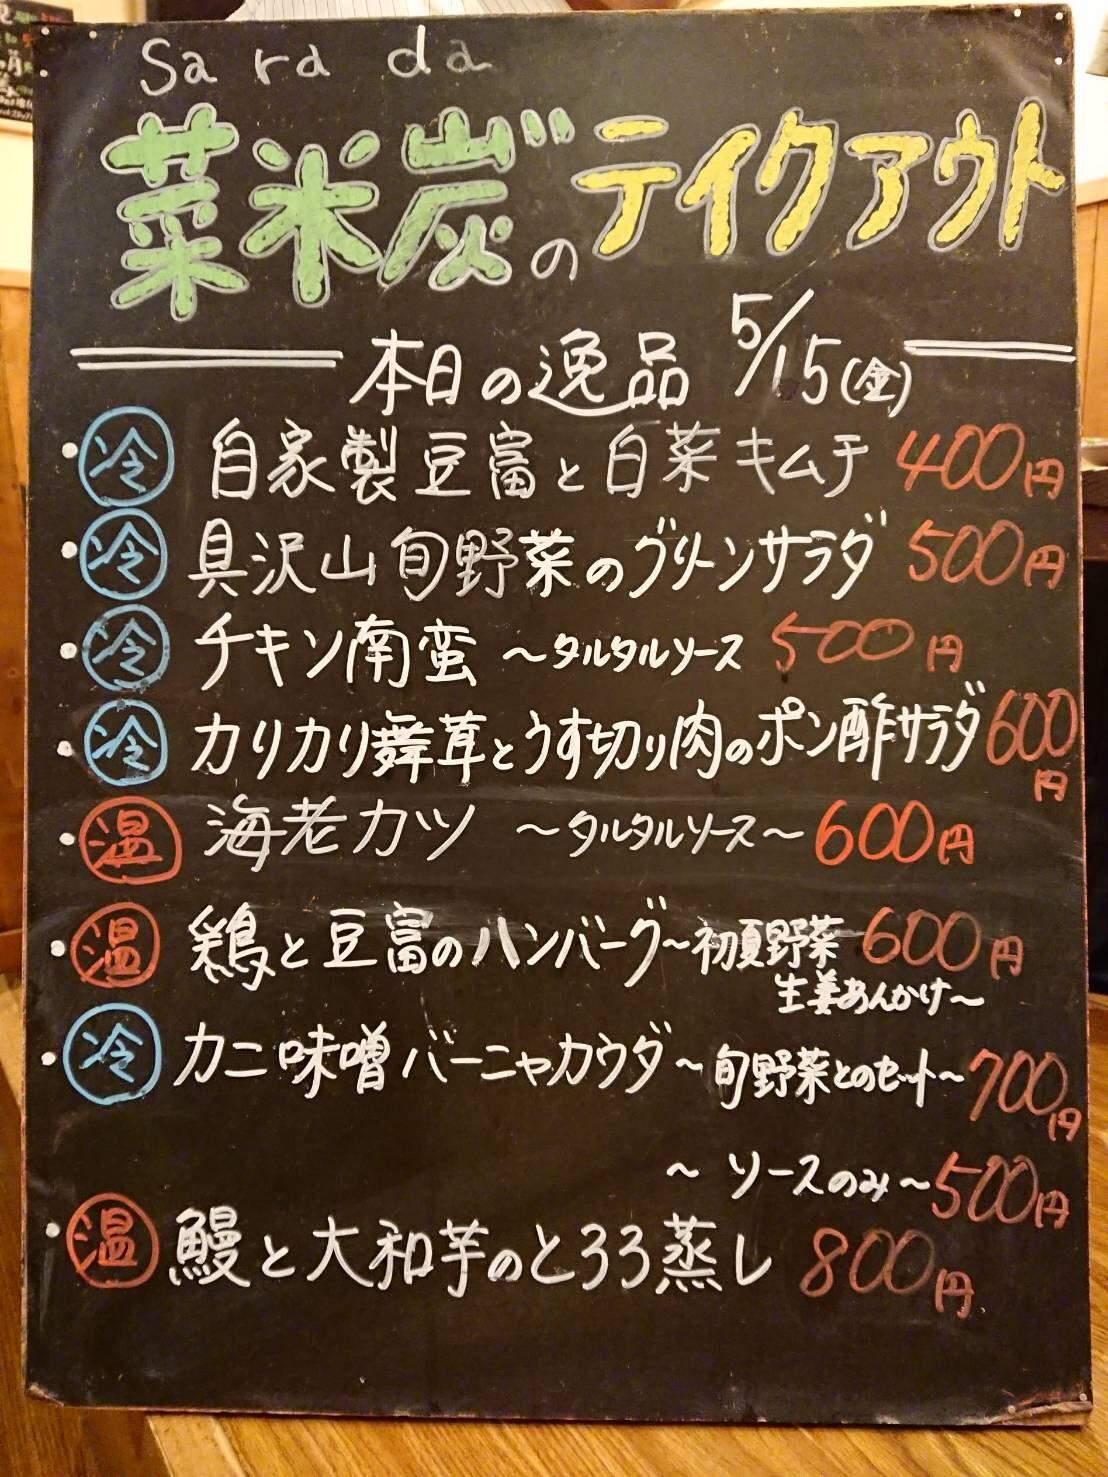 Sa ra da
菜米炭゛のテイクアウト
本日の逸品 5/15(金)
・冷 自家製豆富と白菜キムチ 400円
・冷 具沢山旬野菜のグリーンサラダ 500円
・冷 チキン南蛮 ~タルタルソース 500円
・冷 カリカリ舞茸とうす切り肉のポン酢サラダ 600円
・温 海老カツ ~タルタルソース~ 600円
・温 鶏と豆富のハンバーグ~初夏野菜 600円
生姜あんかけ~
・冷 カニ味噌バーニャカウダ~旬野菜とのセット~ 700円
~ソースのみ~ 500円
・温 鰻と大和芋のとろろ蒸し 800円